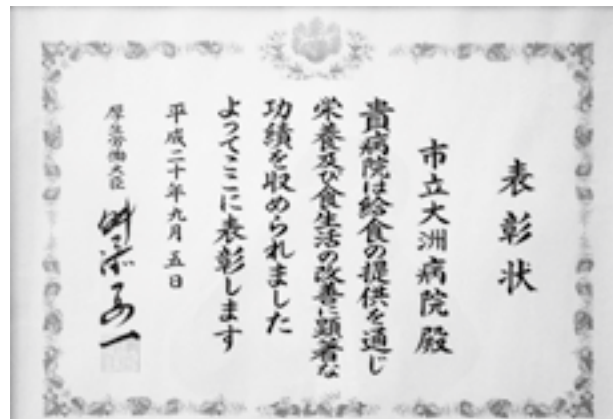 表彰状
市立大洲病院殿
貴病院は給食の提供を通じ
栄養及び食生活の改善に顕著な
功績を収められました
よってここに表彰します
平成二十年九月五日
厚生労働大臣 舛添要一